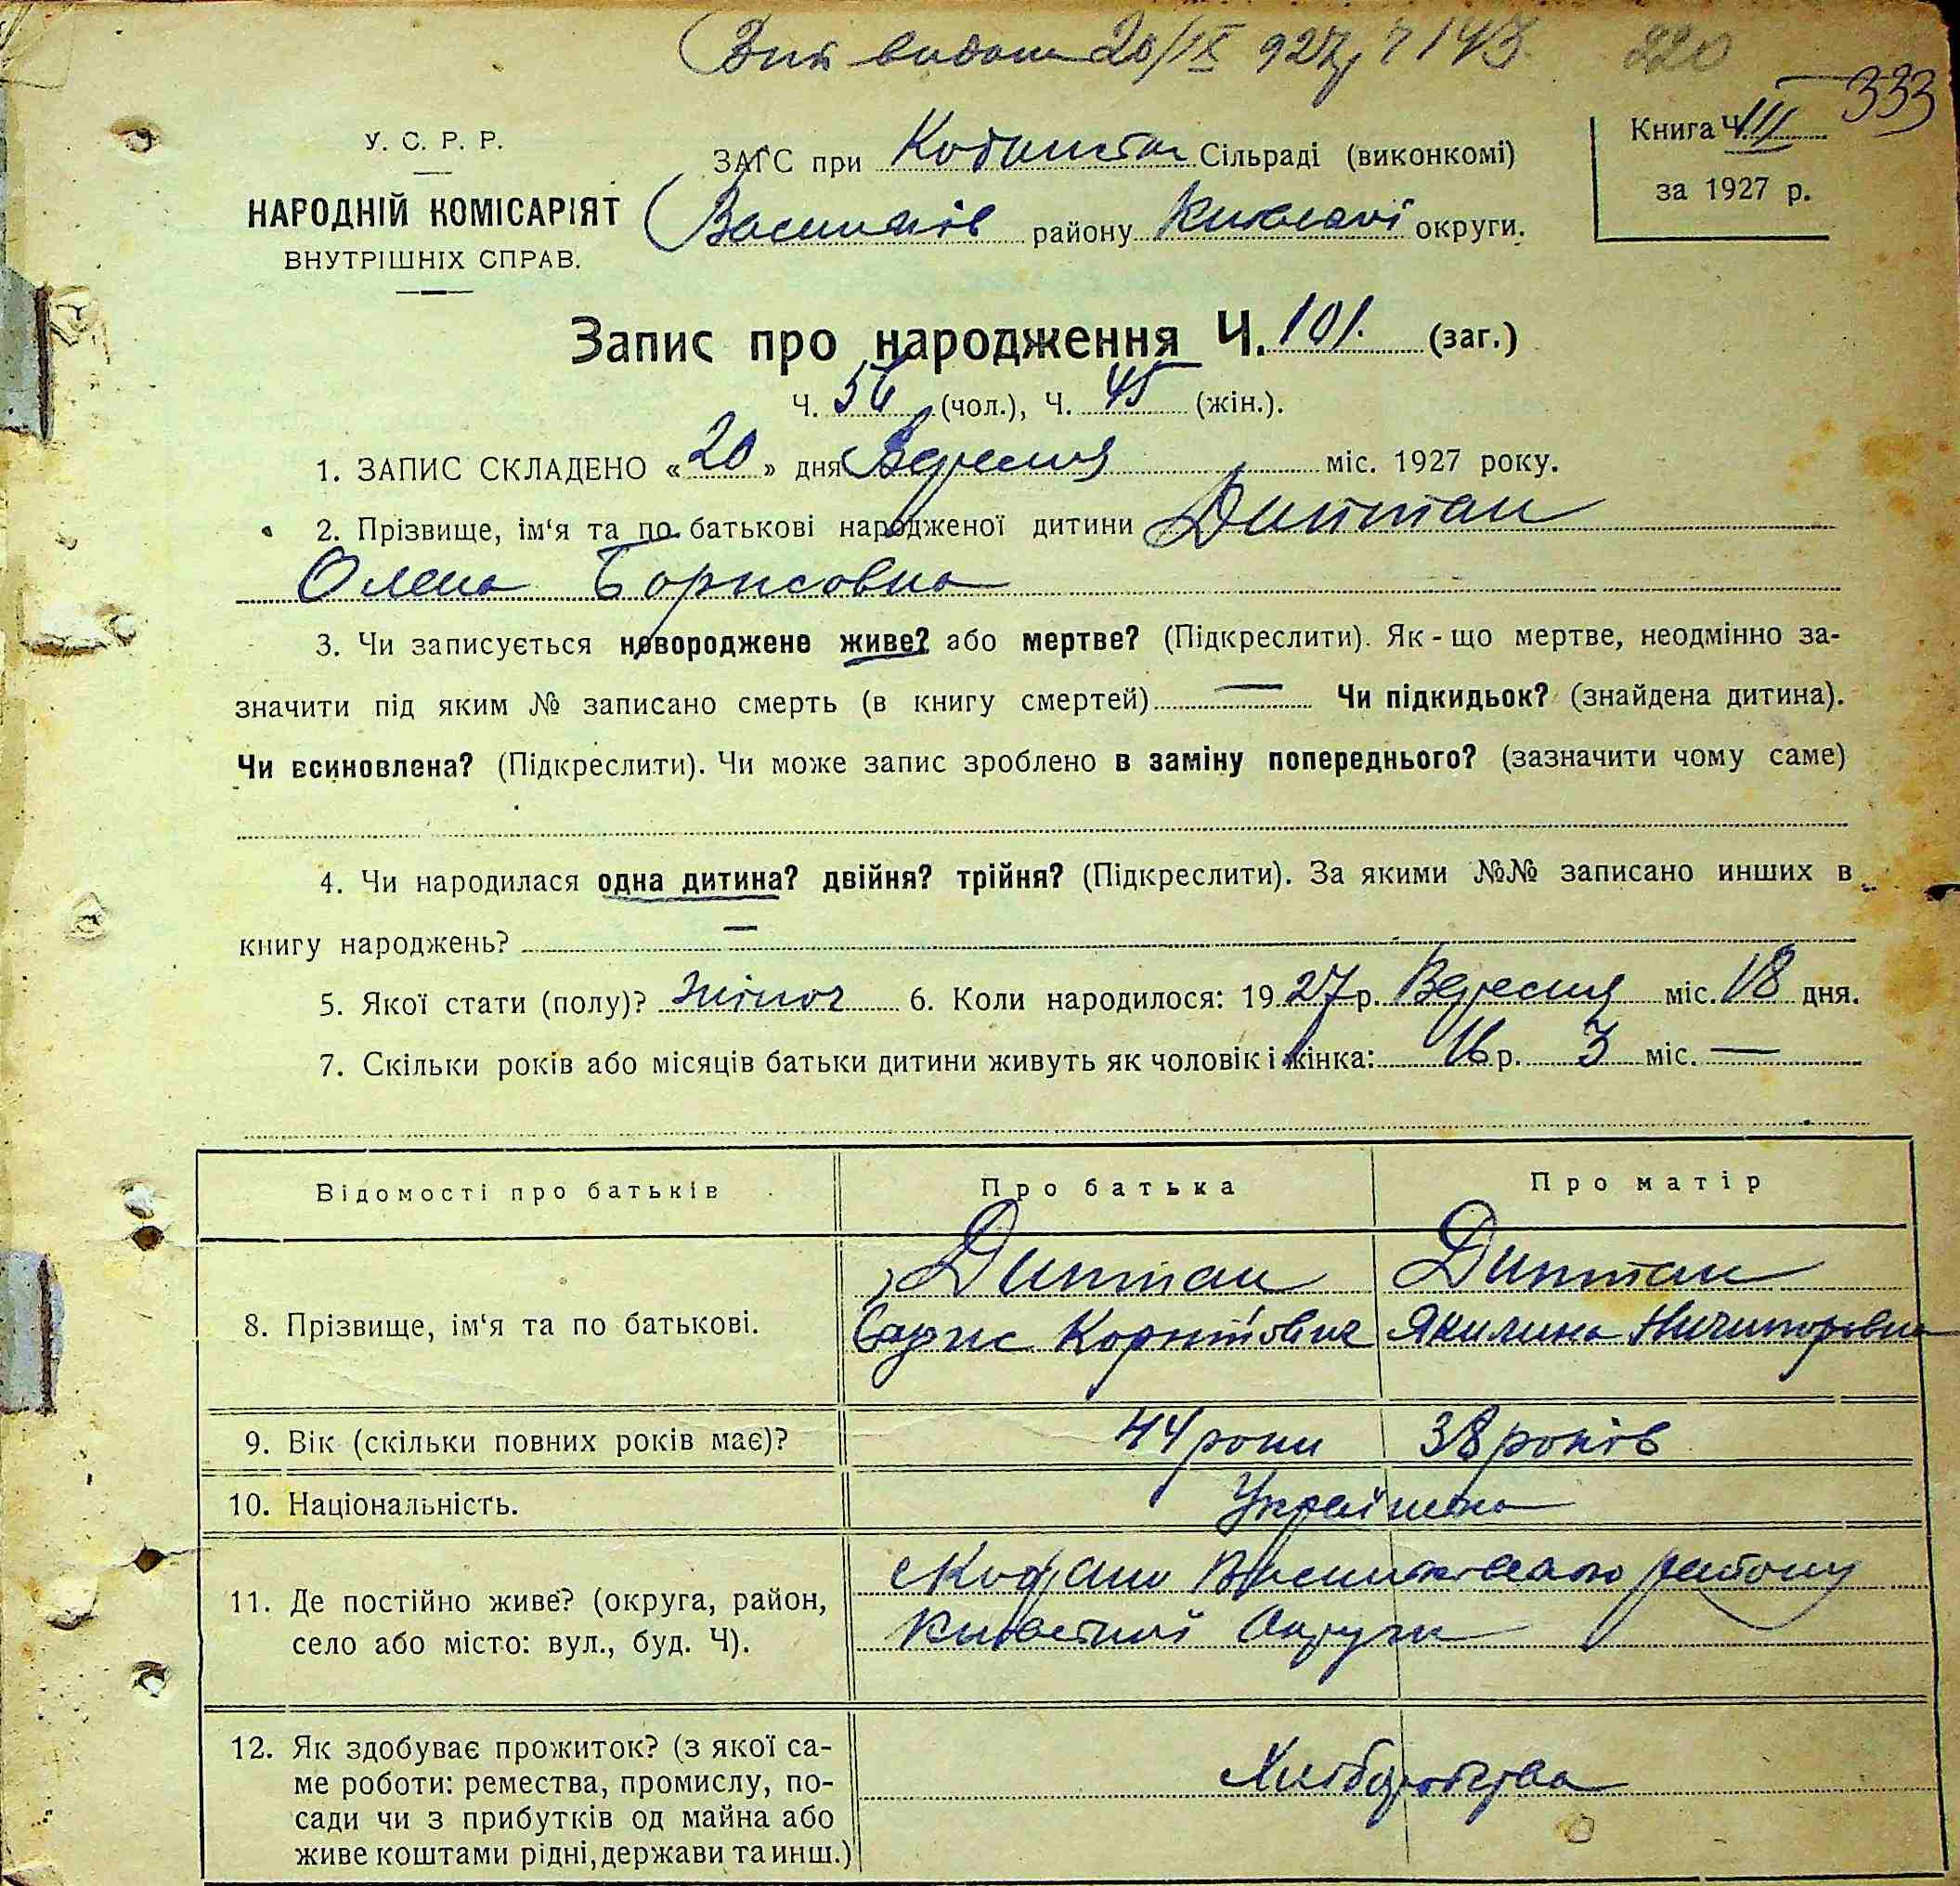 видана 20/IX 927, 143. 220
333
У. С. Р. Р.
НАРОДНІЙ КОМІСАРІЯТ
ВНУТРІШНІХ СПРАВ.
ЗАГС при Сільраді (виконкомі)
району округи.
Книга Ч. III
за 1927 р.
Запис про народження Ч. 101. (заг.)
Ч. 56 (чол.), Ч. 45 (жін.).
1. ЗАПИС СКЛАДЕНО «20» дня Вересня міс. 1927 року.
2. Прізвище, ім‘я та по батькові народженої дитини Диптан
Олена Борисовна
3. Чи записується новороджене живе? або мертве? (Підкреслити). Як-що мертве, неодмінно за-
значити під яким № записано смерть (в книгу смертей) — Чи підкидьок? (знайдена дитина).
Чи всиновлена? (Підкреслити). Чи може запис зроблено в заміну попереднього? (зазначити чому саме)
4. Чи народилася одна дитина? двійня? трійня? (Підкреслити). За якими №№ записано инших в
книгу народжень? —
5. Якої стати (полу)? жіноч 6. Коли народилося: 1927 р. Вересня міс. 18 дня.
7. Скільки років або місяців батьки дитини живуть як чоловік і жінка: 16 р. 3 міс. —
Відомості про батьків Про батька Про матір
8. Прізвище, ім‘я та по батькові. Диптан Диптан
Борис Якилина Ничипоровна
9. Вік (скільки повних років має)? 44 роки 38 років
10. Національність. Українська
11. Де постійно живе? (округа, район,
село або місто: вул., буд. Ч). Васильківського району
Київської Округи
12. Як здобуває прожиток? (з якої са-
ме роботи: ремества, промислу, по-
сади чи з прибутків од майна або
живе коштами рідні, держави та инш.) Хліборобства